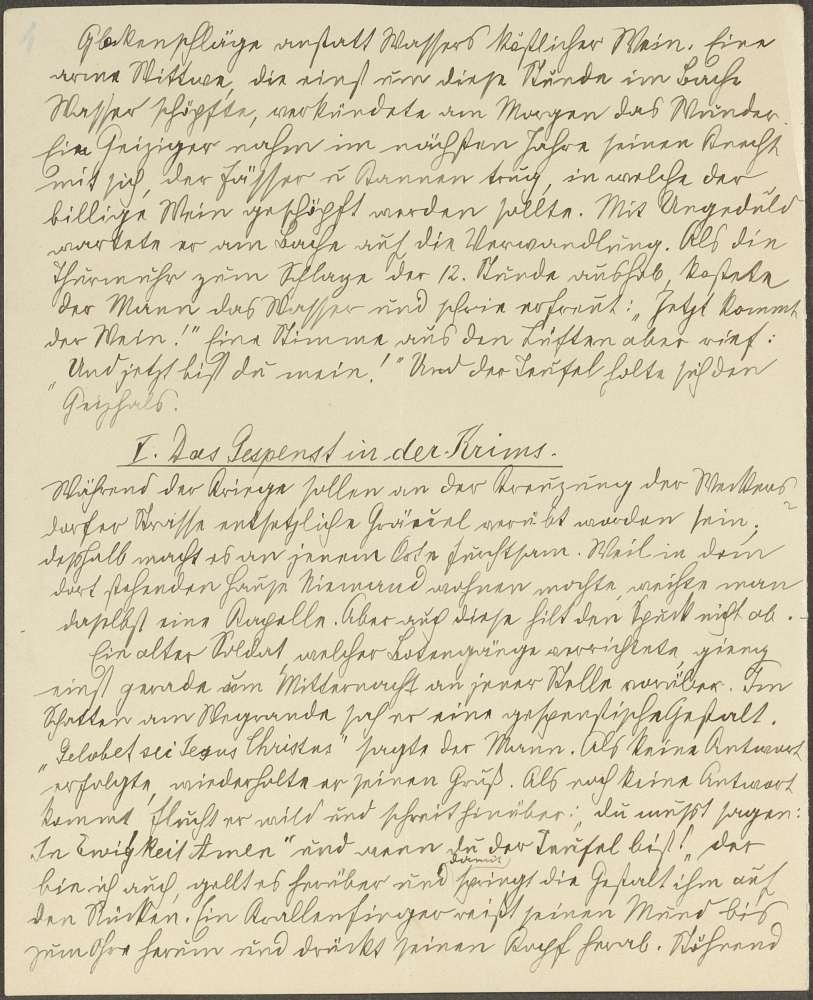 Glockenschläge anstatt Wassers köstlicher Wein. Eine
arme Wittwe, die einst um diese Stunde im Bache
Wasser schöpfte, verkündete am Morgen das Wunder.
Ein Geiziger nahm im nächsten Jahre seinen Knecht
mit sich, der Fässer u Kannen trug, in welche der
billige Wein geschöpft werden sollte. Mit Ungeduld
wartete er am Bache auf die Verwandlung. Als die
Thurmuhr zum Schlage der 12. Stunde aushob, kostete
der Mann das Wasser und schrie erfreut: „Jetzt kommt
der Wein!" Eine Stimme aus den Lüften aber rief:
„Und jetzt bist du mein!" Und der Teufel holte sich den
Geizhals.
V. Das Gespenst in der Krims.
Während der Kriege sollen an der Kreuzung der Weikers
dorfer Strasse entsetzliche Gräuel verübt worden sein;
deßhalb macht es an jenem Orte furchtsam. Weil in dem
dort stehenden Hause Niemand wohnen mochte, weihte man
daselbst eine Kapelle. Aber auch diese hilt den Spuck nicht ab.
Ein alter Soldat, welcher Botengänge verrichtete, gieng
einst gerade um Mitternacht an jener Stelle vorüber. Im
Schatten am Wegrande sah er eine gespenstische Gestalt.
„Gelobet sei Jesus Christus" sagte der Mann. Als keine Antwort
erfolgte, wiederholte er seinen Gruß. Als noch keine Antwort
kommt, flucht er wild und schreit hinüber: „du musst sagen:
In Ewigkeit Amen" und wenn du der Teufel bist!" „der
bin ich auch, gellt es herüber und damit springt die Gestalt ihm auf
den Rücken. Ein Krallenfinger reißt seinen Mund bis
zum Ohre herum und drückt seinen Kopf herab. Stöhnend